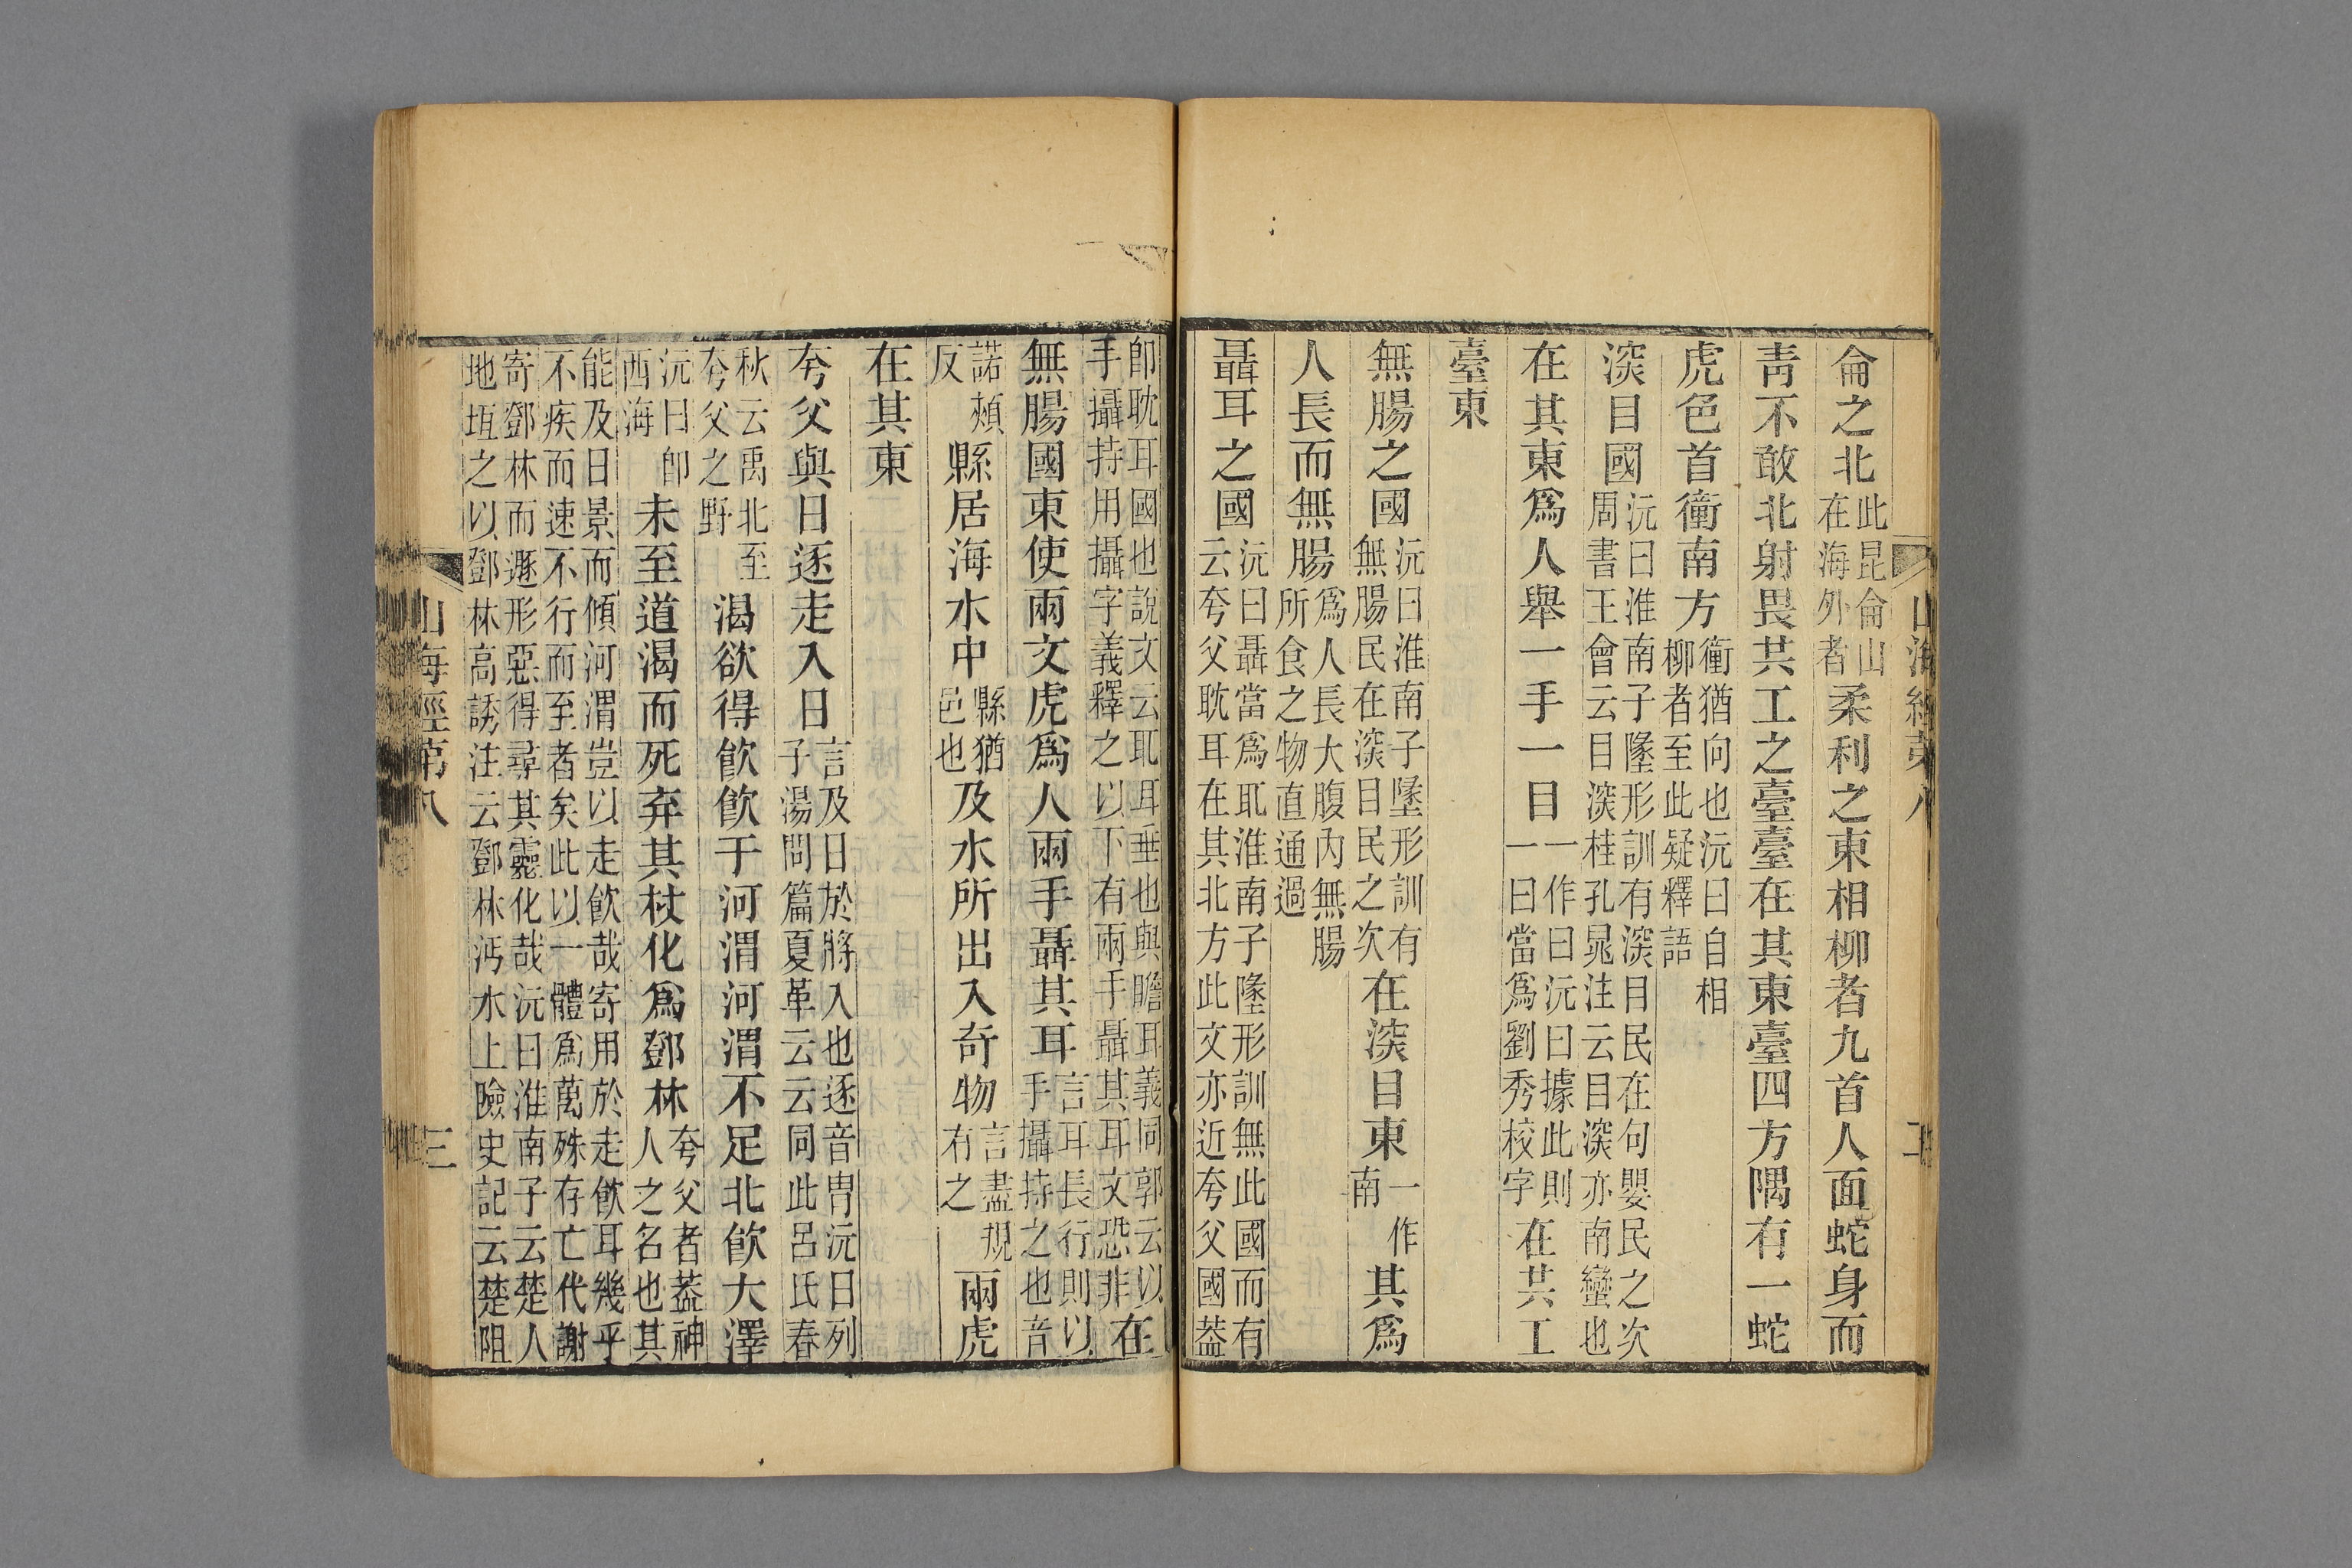 山海經弟八
侖之北此昆侖山在海外者柔利之東相柳者九首人面蛇身而
青不敢北射畏共工之臺臺在其東臺四方隅有一蛇
虎色首衝南方衝猶向也沅曰自相柳者至此疑釋語
深目國沅曰淮南子墬形訓有深目民在句嬰民之次周書王會云目深桂孔晁注云目深亦南蠻也
在其東爲人舉一手一目一作曰沅曰據此則一曰當爲劉秀校字在共工
臺東
無腸之國沅曰淮南子墬形訓有無腸民在深目民之次在深目東一作南其爲
人長而無腸爲人長大腹內無腸所食之物直通過
聶耳之國沅曰聶當爲耴淮南子墬形訓無此國而有云夸父耽耳在其北方此文亦近夸父國葢
卽耽耳國也說文云耴耳垂也與瞻耳義同郭云以手攝持用攝字義釋之以下有兩手聶其耳文恐非在
無腸國東使兩文虎爲人兩手聶其耳言耳長行則以手攝持之也音
諾頰反縣居海水中縣猶邑也及水所出入奇物言盡規有之兩虎
在其東
夸父與日逐走入日言及日於將入也逐音胄沅曰列子湯問篇夏革云云同此呂氏春
秋云禹北至夸父之野渴欲得飲飲于河渭河渭不足北飲大澤
沅曰卽西海未至道渴而死弃其杖化爲鄧林夸父者葢神人之名也其
能及日景而傾河渭豈以走飲哉寄用於走飲耳幾乎不疾而速不行而至者矣此以一體爲萬殊存亡代謝
寄鄧林而遯形惡得尋其靈化哉沅曰淮南子云楚人地垣之以鄧林高誘注云鄧林沔水上險史記云楚阻
山海經弟八 三